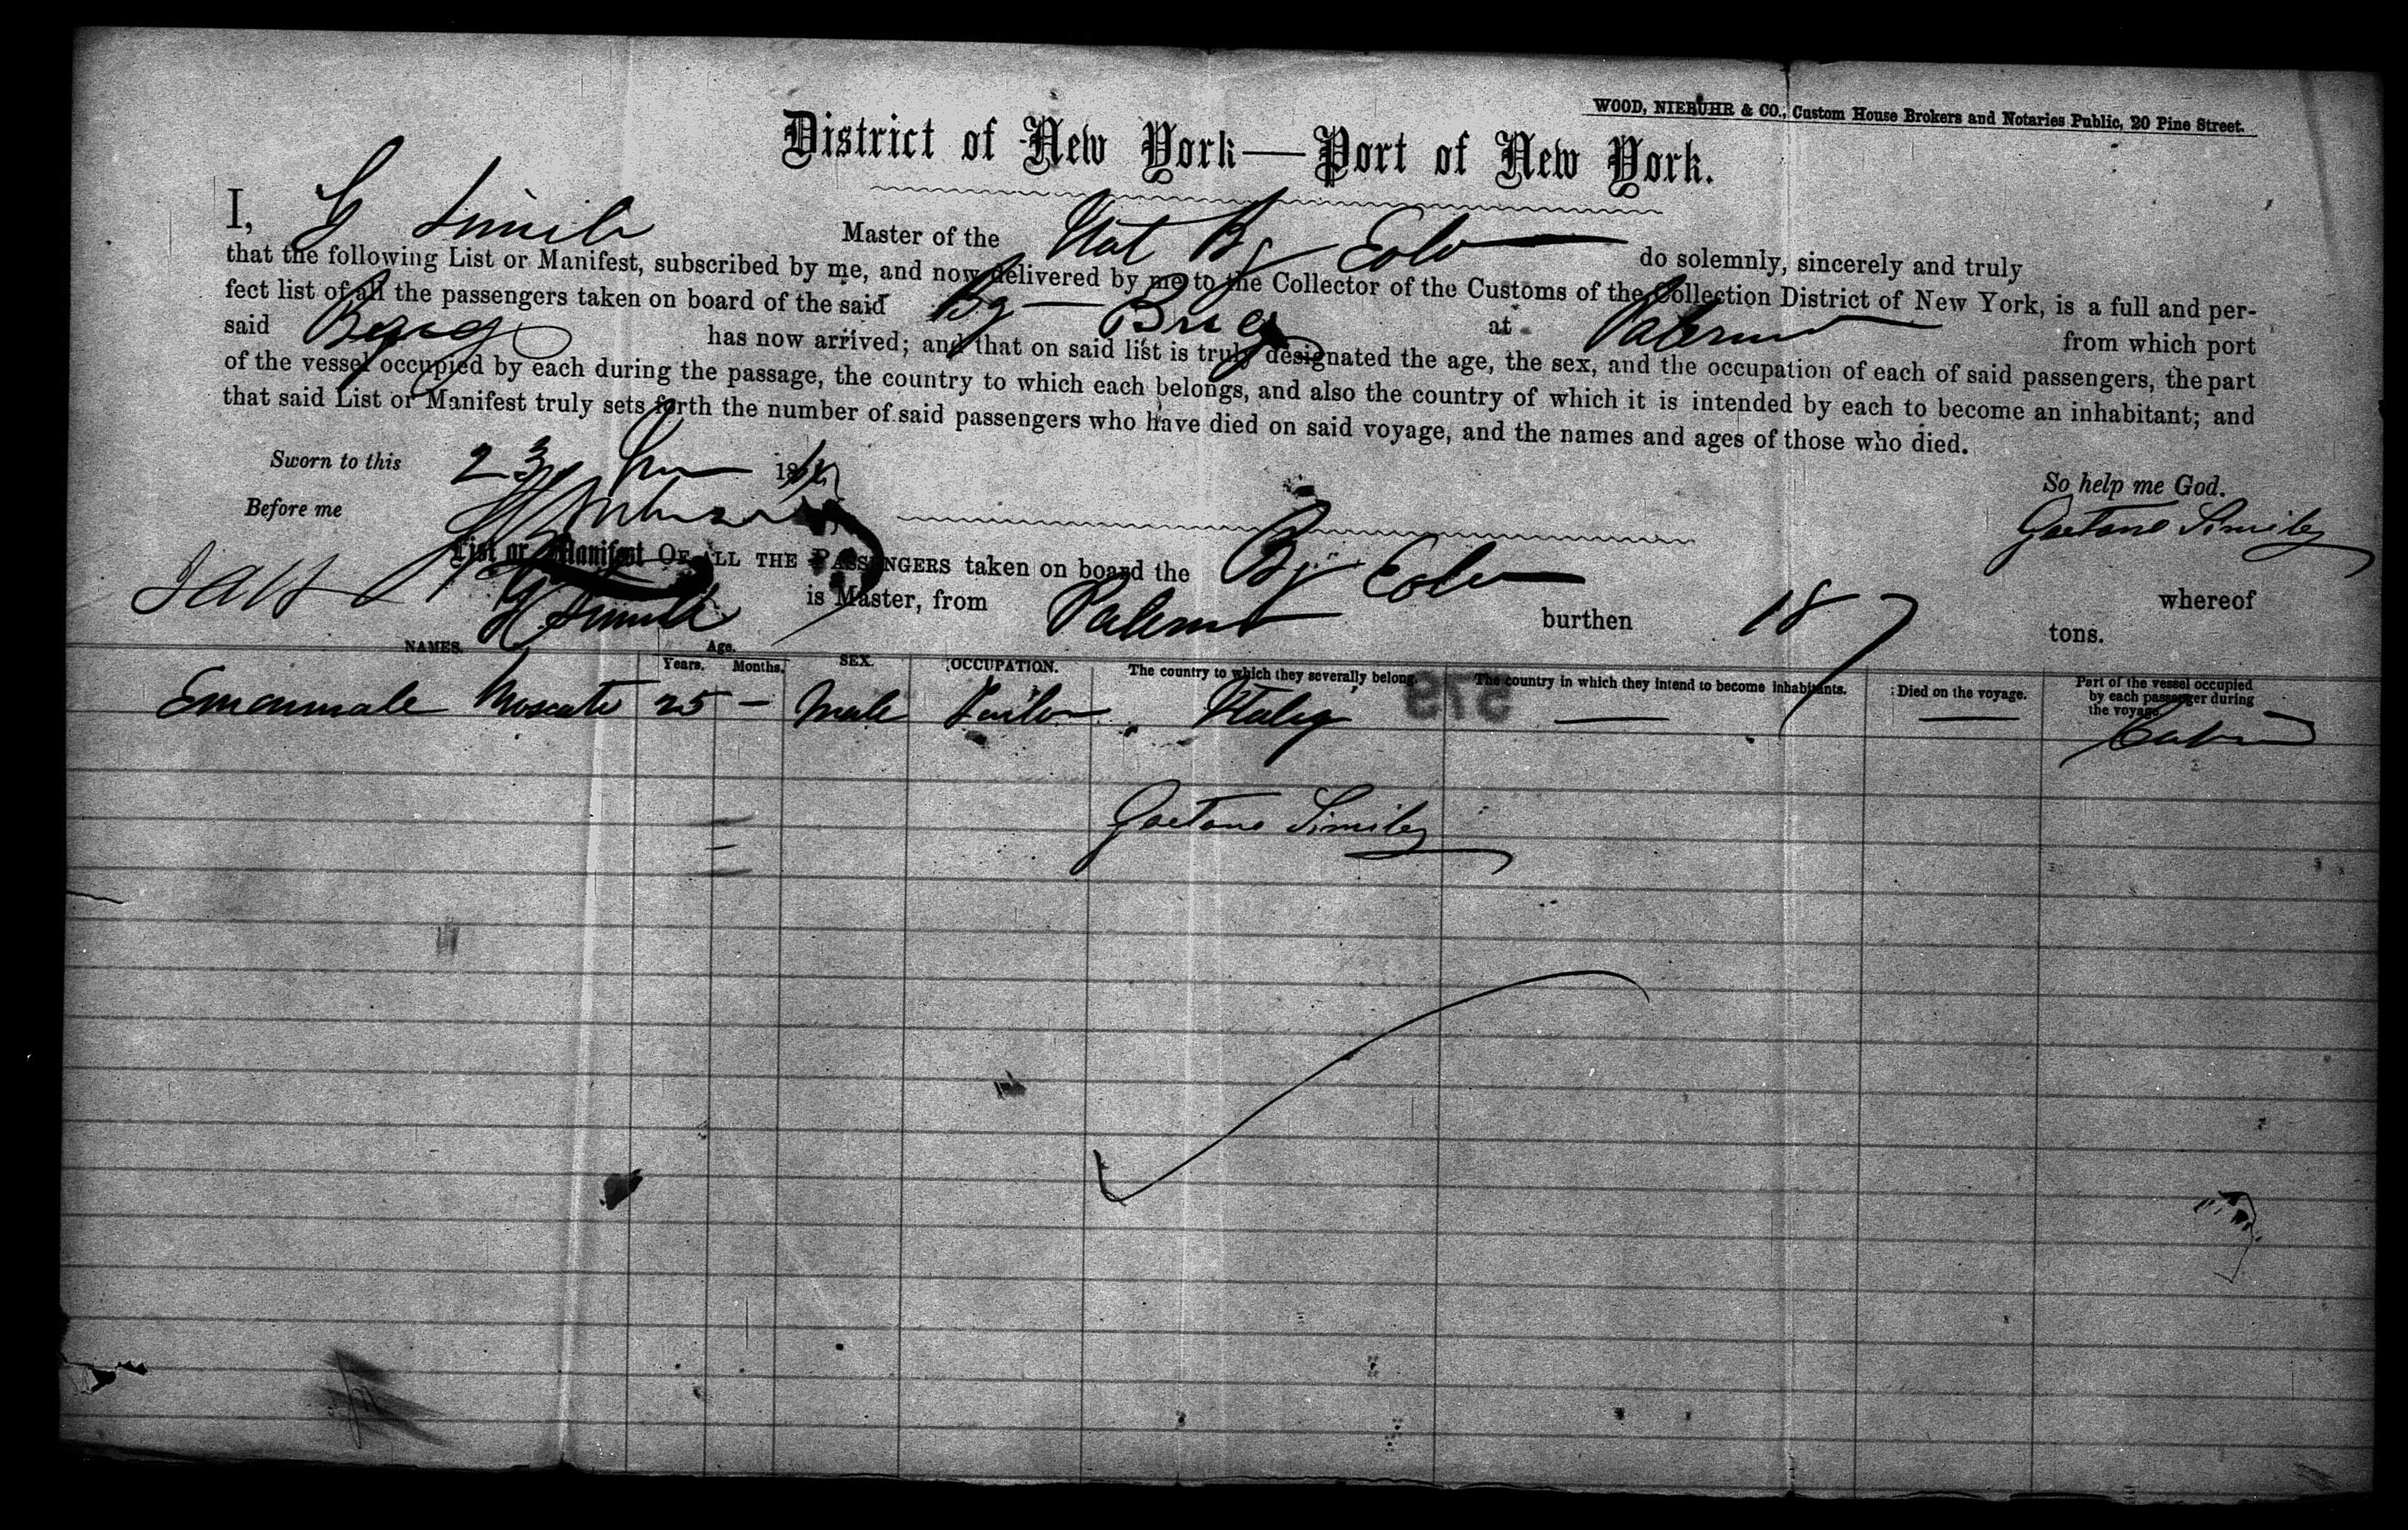 WOOD, NIEBUHR & CO., Custom House Brokers and Notaries Public, 20 Pine Street.
District of New York—Port of New York.
I, G Simile Master of the Ital Bg Eolo do solemnly, sincerely and truly
that the following List or Manifest, subscribed by me, and now delivered by me to the Collector of the Customs of the Collection District of New York, is a full and per-
fect list of all the passengers taken on board of the said Bg Brig at Palermo from which port
said Barg has now arrived; and that on said list is truly designated the age, the sex, and the occupation of each of said passengers, the part
of the vessel occupied by each during the passage, the country to which each belongs, and also the country of which it is intended by each to become an inhabitant; and
that said List or Manifest truly sets forth the number of said passengers who have died on said voyage, and the names and ages of those who died.
Sworn to this 23 18
So help me God.
Before me
Gaetano Simile
List or Manifest OF ALL THE PASSENGERS taken on board the Bg Eolo whereof
G Simile is Master, from Palermo burthen 187 tons.
NAMES. Age. Years. Months. SEX. OCCUPATION. The country to which they severally belong. The country in which they intend to become inhabitants. Died on the voyage. Part of the vessel occupied by each passenger during the voyage.
Emanuale Moscato 25 — Male Tailor Italy — — Cabin
575
Gaetano Simile